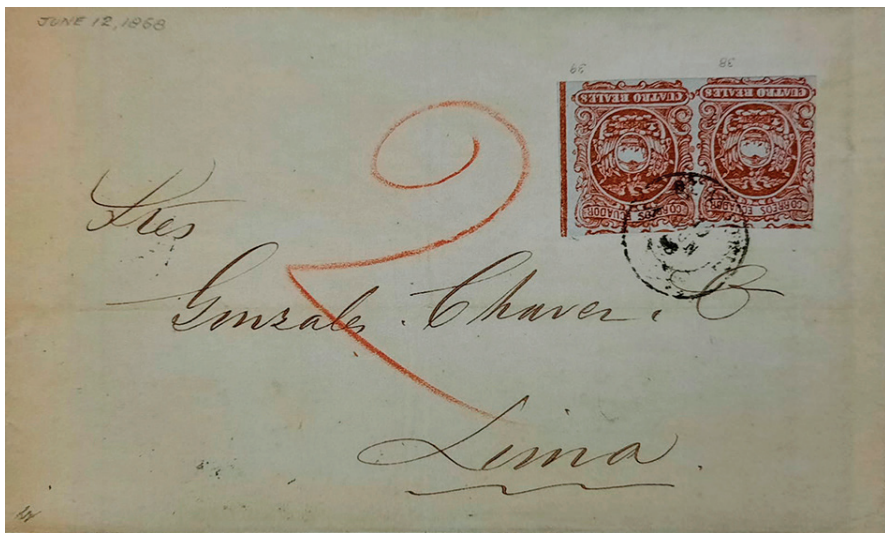 JUNE 12, 1868
39 38
CUATRO REALES CUATRO REALES
CORREOS ECUADOR CORREOS ECUADOR
2
Sres
Gonzales, Chavez, C
Lima.